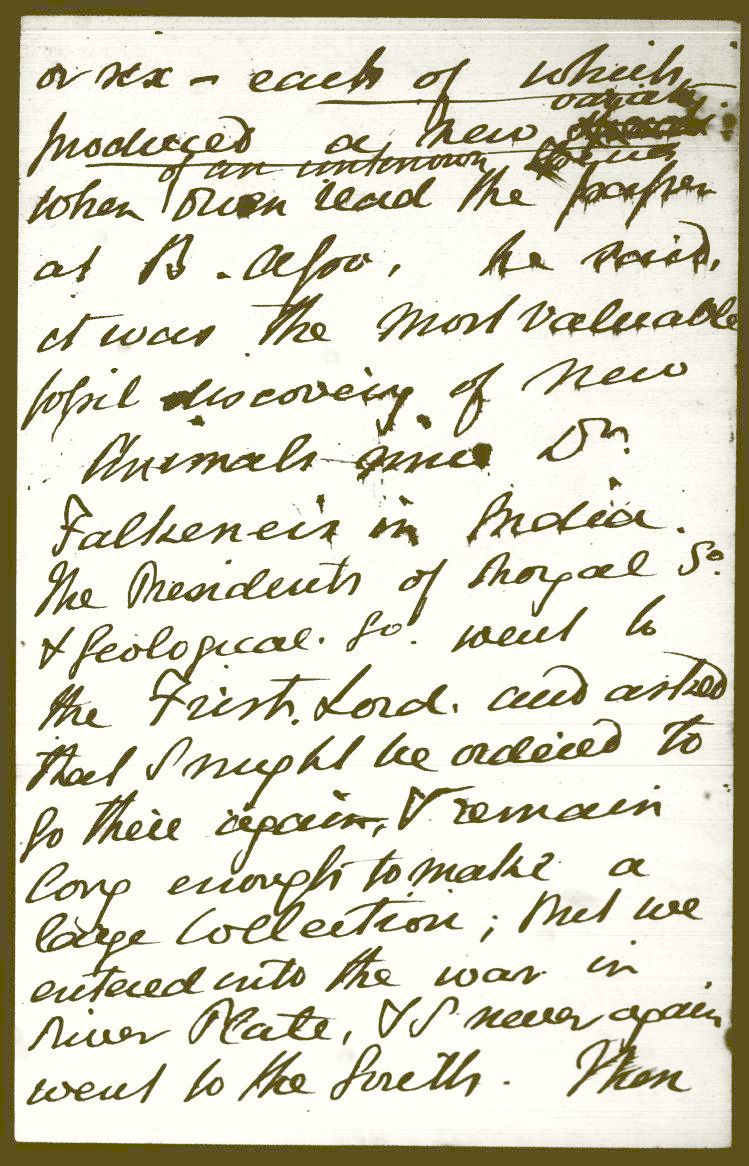 or six – each of which
variety
produced a new
of an unknown Genus
when Owen read the paper
at B. Asso. he said,
it was the most valuable
fossil discovery of new
Animals since Dr.
Falkeners in India.
The Presidents of Royal So.
& Geological. So. went to
the First. Lord. and asked
that I might be ordered to
go there again, & remain
long enough to make a
large Collection; but we
entered into the war in
River Plate, & I never again
went to the South. Then